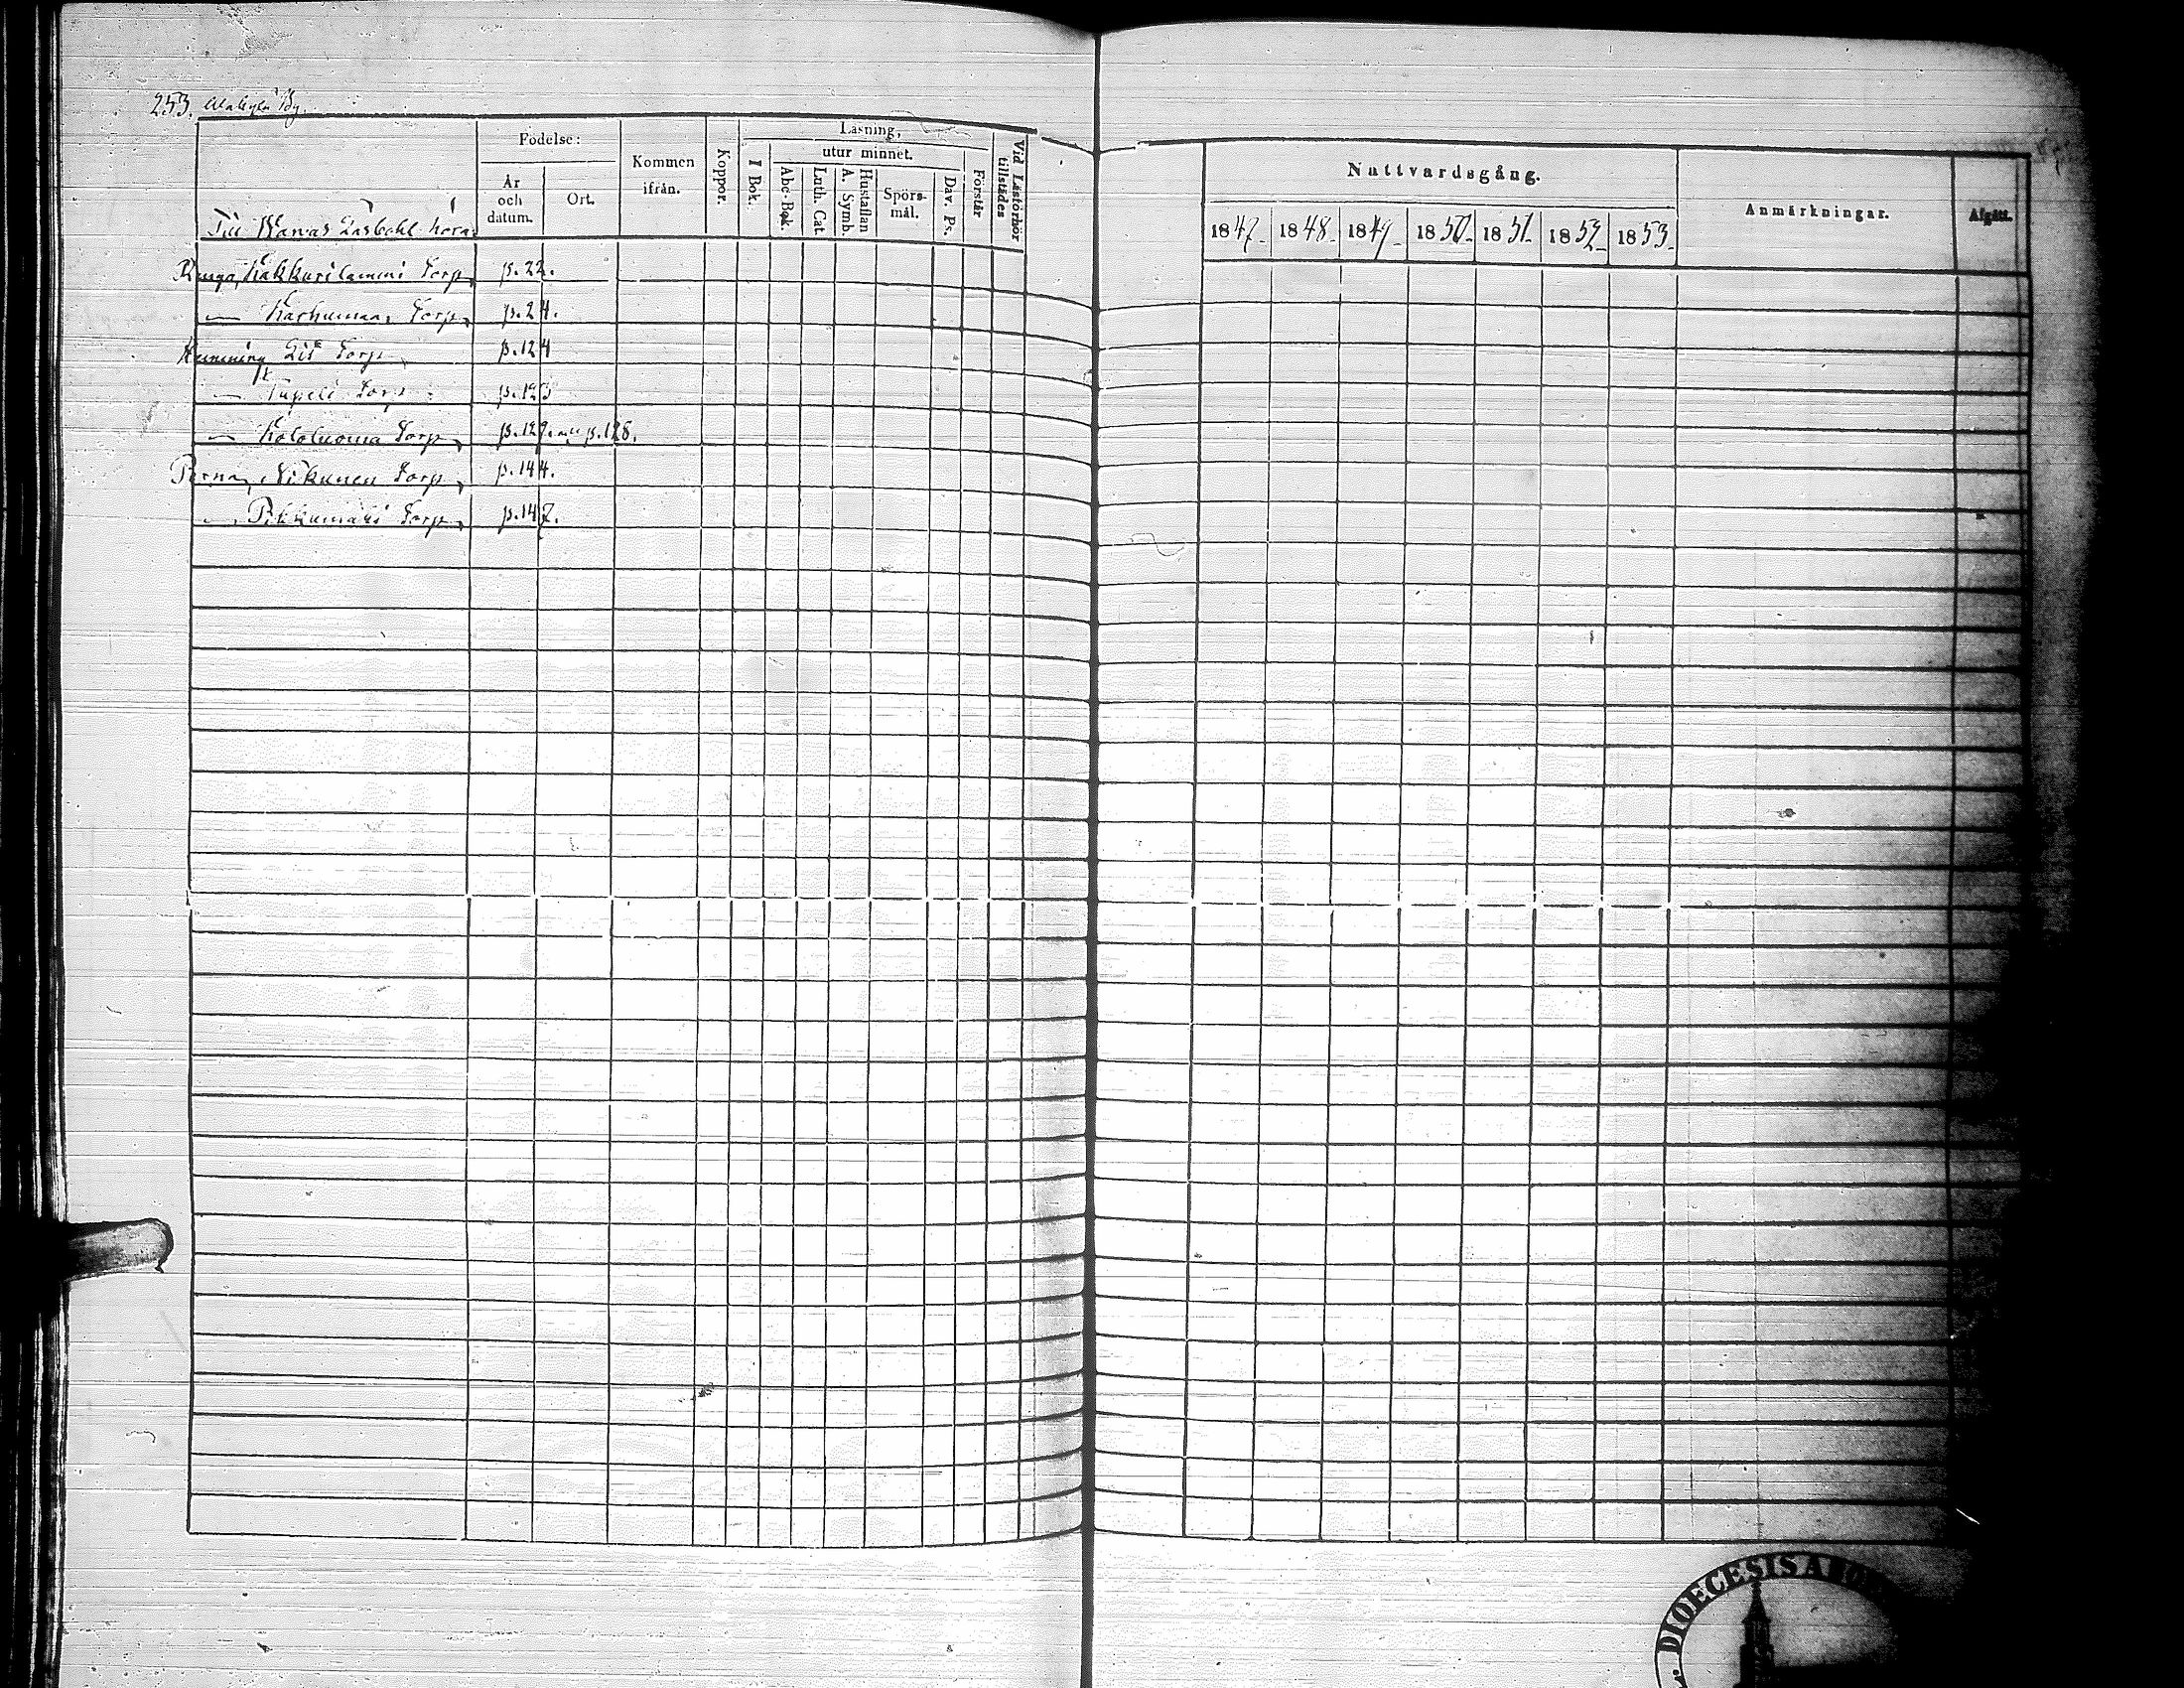 253. Alakylä By.
Födelse:
Kommen ifrån.
Koppor.
Läsning,
I Bok.
utur minnet.
Abc-Bok.
Luth. Cat.
A. Symb.
Hustaflan
Spörs-mål.
Dav. Ps.
Förstår
Vid Läsförhör tillstädes
År och datum.
Ort.
Nattvardsgång.
1847. 1848. 1849. 1850. 1851. 1852. 1853.
Anmärkningar.
Afgått.
Till Wanas Läsbohl höra:
Kakkurilammi Torp, p. 22.
— Karhumaa, Torp, p. 24.
Torp p. 124
— Torp p. 125
— Kololuoma Torp, p. 127. p. 128.
Perna, Nikunen Torp, p. 144.
Pikkumäki Torp, p. 147.
DIOECESIS ABO